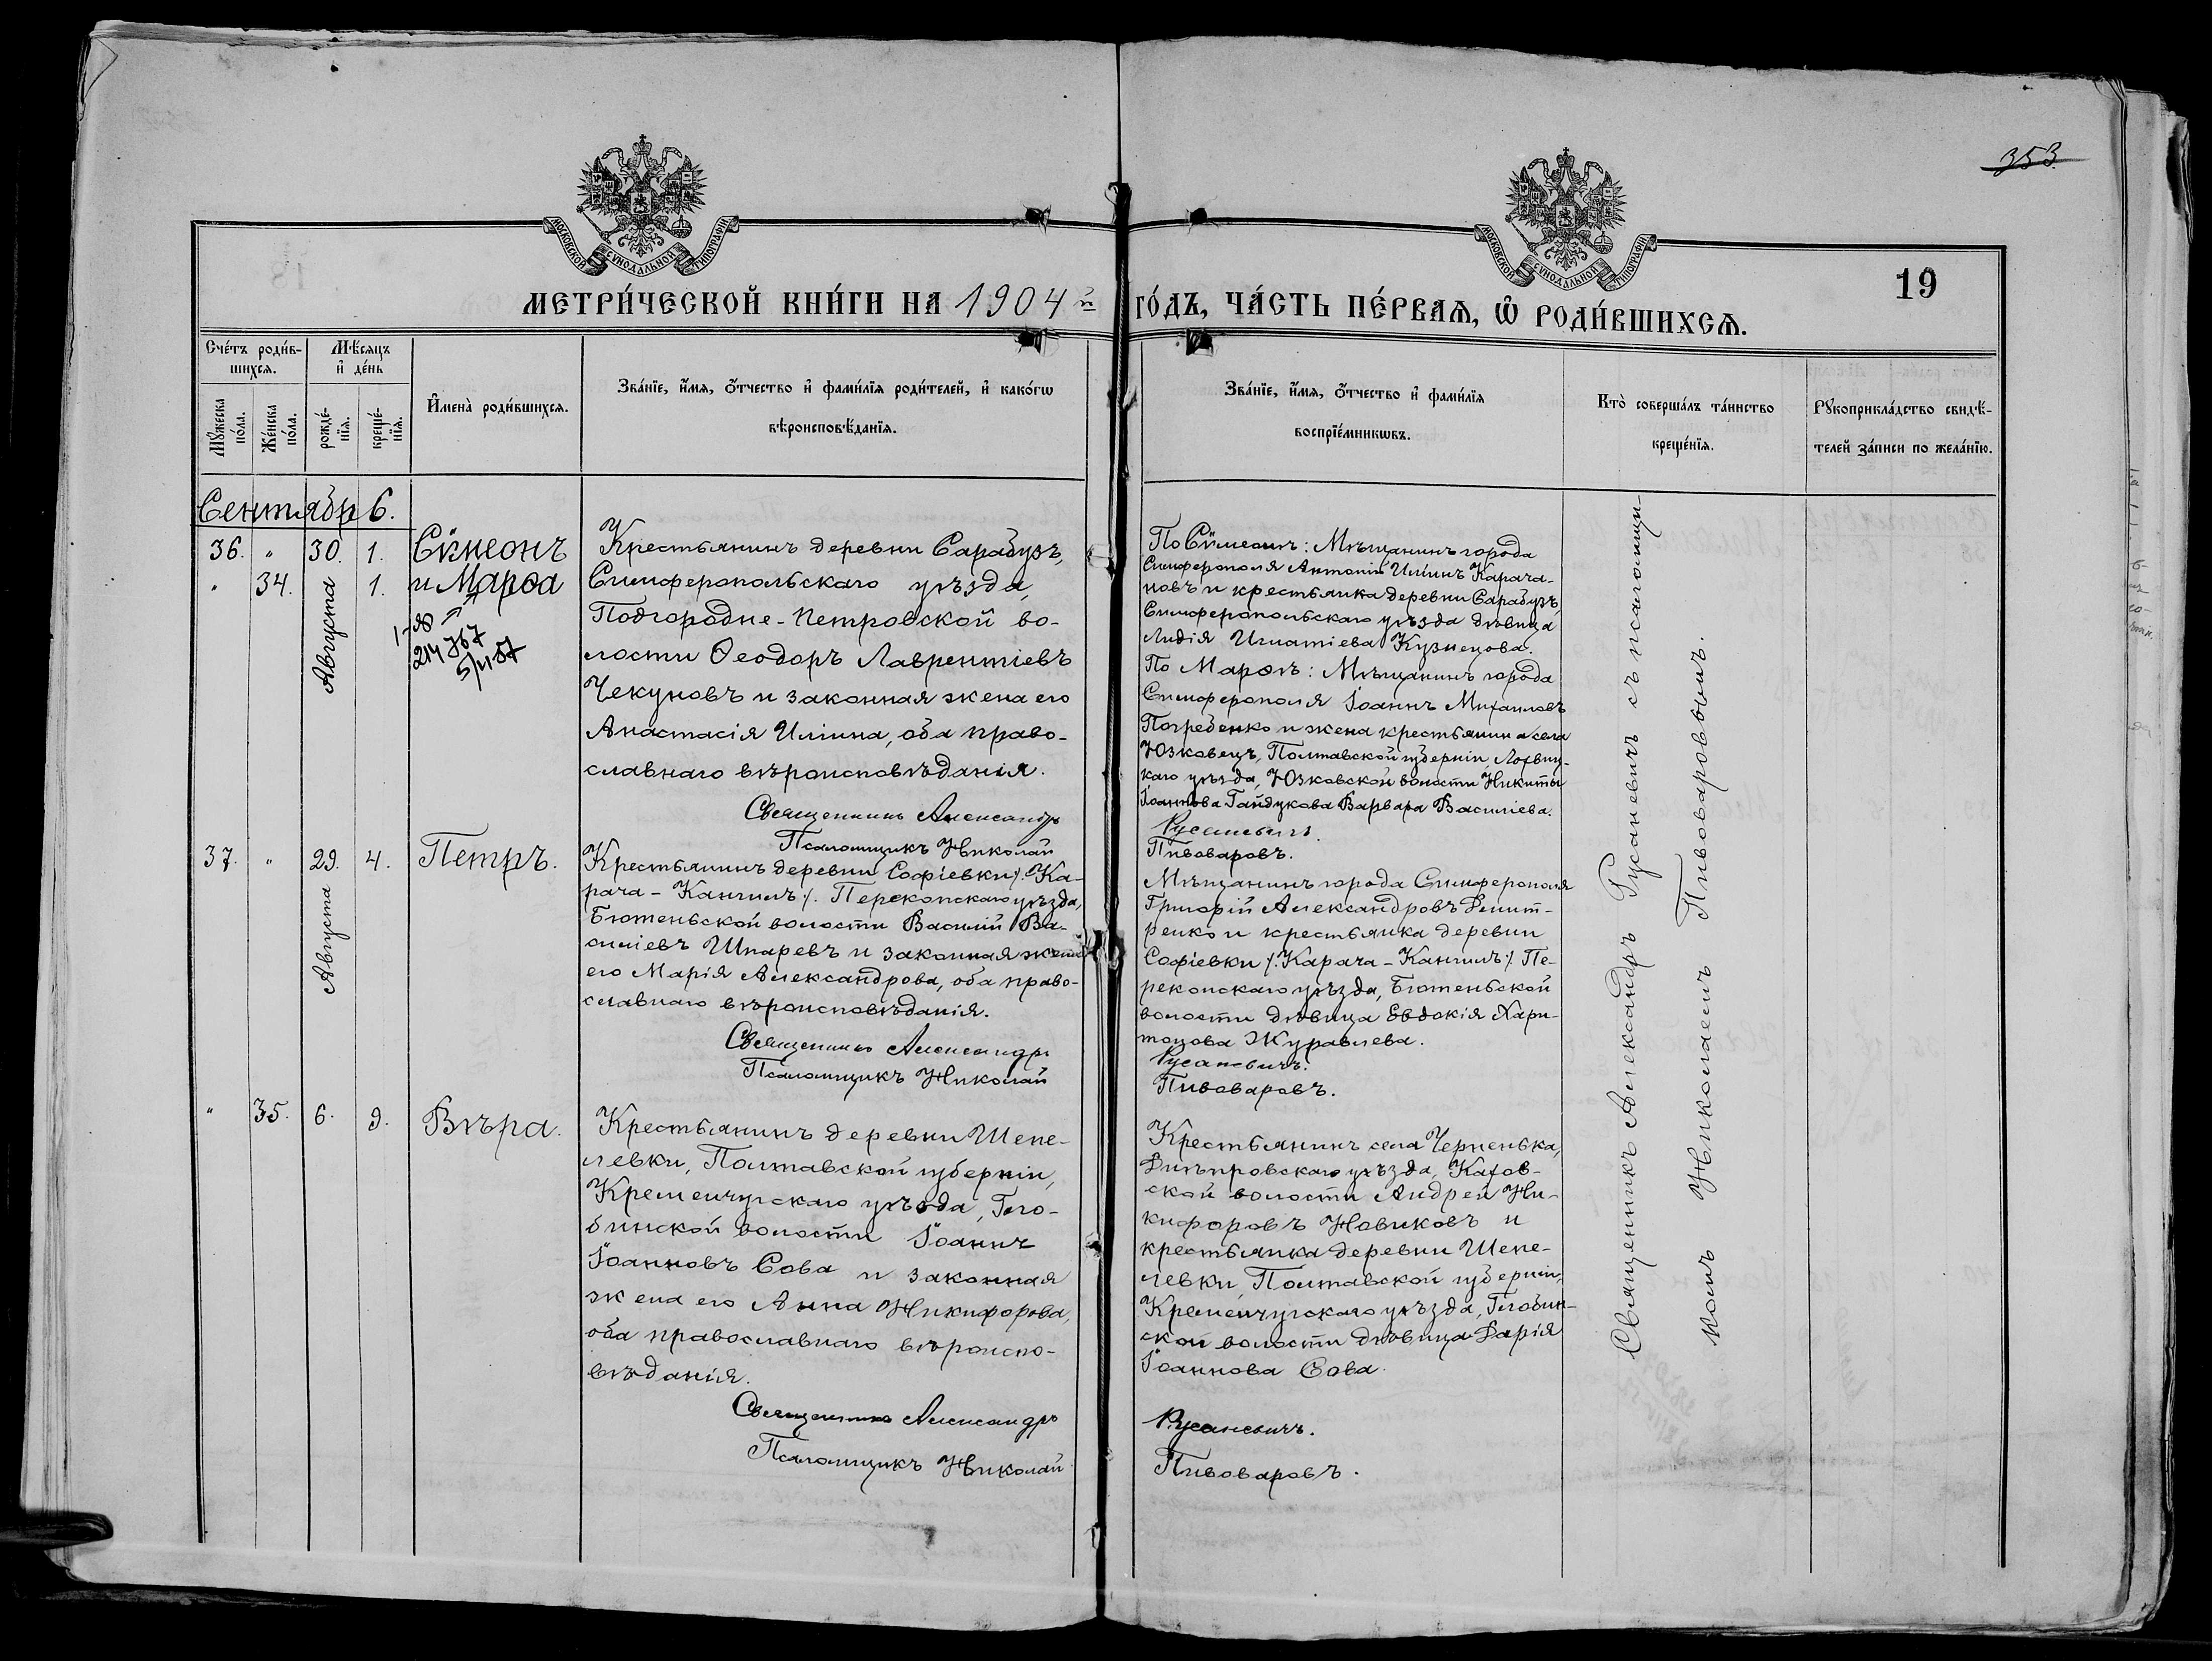 353.
МОСКОВСКОЙ СѴНОДАЛЬНОЙ ТИПОГРАФІИ
МОСКОВСКОЙ СѴНОДАЛЬНОЙ ТИПОГРАФІИ
19
МЕТРИ́ЧЕСКОЙ КНИ́ГИ НА 1904й
ГО́ДЪ, ЧА́СТЬ ПЕ́РВАѦ, Ѽ РОДИ́ВШИХСѦ.
Сче́тъ роди́в-
шихсѧ.
Мѣ́сѧцъ
и҆ де́нь
Мꙋ́жеска по́ла.
Же́нска по́ла.
рожде́-
нїѧ.
креще́-
нїѧ.
И҆мена̀ роди́вшихсѧ.
Зва́нїе, и҆́мѧ, ѻ҆́тчество и҆ фами́лїѧ роди́телей, и҆ како́гѡ
вѣроисповѣ́данїѧ.
Зва́нїе, и҆́мѧ, ѻ҆́тчество и҆ фами́лїѧ
воспрїе́мникѡвъ.
Кто̀ соверша́лъ та́инство
креще́нїѧ.
Рꙋкоприкла́дство свидѣ́-
телей за́писи по жела́нїю.
Сентябрь 6.
36. " 30. 1. Сѵмеонъ
" 34. 1. и Марѳа
Августа
Крестьянинъ деревни Сарабузъ,
Симферопольскаго уѣзда,
Подгородне-Петровской во-
лости Ѳеодоръ Лаврентіевъ
Чекуновъ и законная жена его
Анастасія Иліина, оба право-
славнаго вѣроисповѣданія.
Священникъ Александръ
Псаломщикъ Николай
По Сѵмеонѣ: Мѣщанинъ города
Симферополя Антоній Иліинъ Карача-
новъ и крестьянка деревни Сарабузъ,
Симферопольскаго уѣзда дѣвица
Лидія Игнатіева Кузнецова.
По Марѳѣ: Мѣщанинъ города
Симферополя Іоаннъ Михаиловъ
Погребенко и жена крестьянина села
Юзковецъ, Полтавской губерніи, Лохвиц-
каго уѣзда, Юзковской волости Никиты
Іоаннова Гайдукова Варвара Василіева.
Русаневичъ.
Пивоваровъ.
37. " 29. 4. Петръ.
Августа
Крестьянинъ деревни Софіевки /.Ка-
рача-Кангилъ/. Перекопскаго уѣзда,
Бютеньской волости Василій Ва-
силіевъ Шпаревъ и законная жена
его Марія Александрова, оба право-
славнаго вѣроисповѣданія.
Священникъ Александръ
Псаломщикъ Николай
Мѣщанинъ города Симферополя
Григорій Александровъ Дмит-
ренко и крестьянка деревни
Софіевки /.Карача-Кангилъ/. Пе-
рекопскаго уѣзда, Бютеньской
волости дѣвица Евдокія Хари-
тонова Журавлева.
Русаневичъ.
Пивоваровъ.
" 35. 6. 9. Вѣра.
Крестьянинъ деревни Шепе-
левки, Полтавской губерніи,
Кременчугскаго уѣзда, Гло-
бинской волости Іоаннъ
Іоанновъ Сова и законная
жена его Анна Никифорова,
оба православнаго вѣроиспо-
вѣданія.
Священникъ Александръ
Псаломщикъ Николай
Крестьянинъ села Черненька,
Днѣпровскаго уѣзда, Кахов-
ской волости Андрей Ни-
кифоровъ Новиковъ и
крестьянка деревни Шепе-
левки, Полтавской губерніи,
Кременчугскаго уѣзда, Глобин-
ской волости дѣвица Дарія
Іоаннова Сова.
Русаневичъ.
Пивоваровъ.
Священникъ Александръ Русаневичъ съ псаломщи-
комъ Николаемъ Пивоваровымъ.